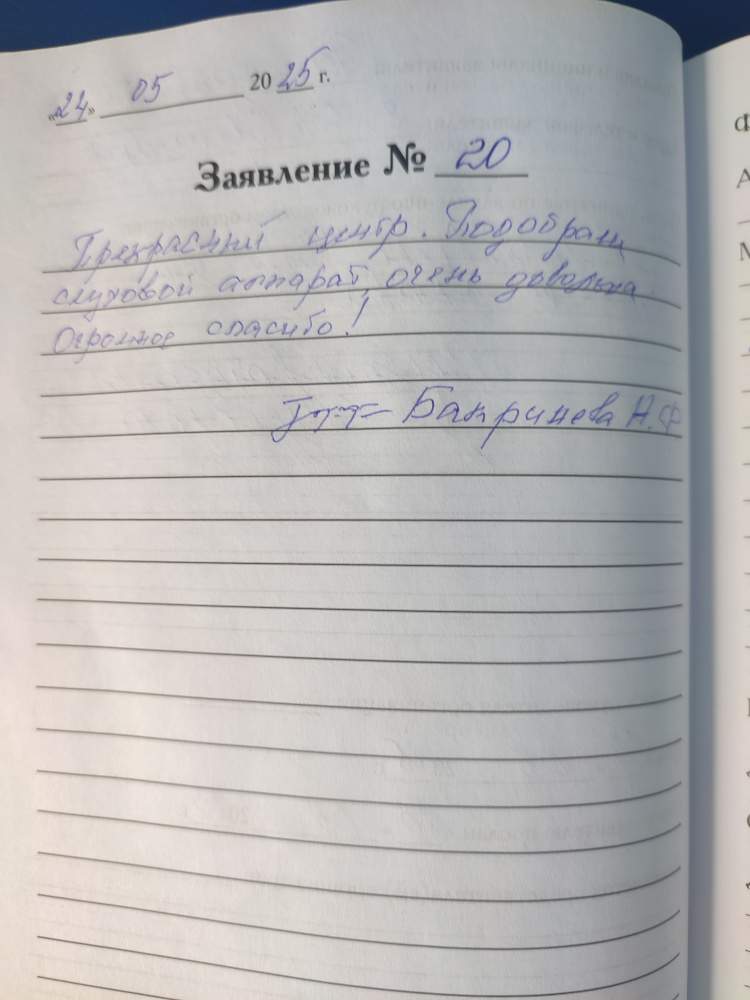 «24» 05 2025 г.
Заявление № 20
Прекрасный центр. Подобрали
слуховой аппарат, очень довольна
Огромное спасибо!
Бакринева Н.Ф